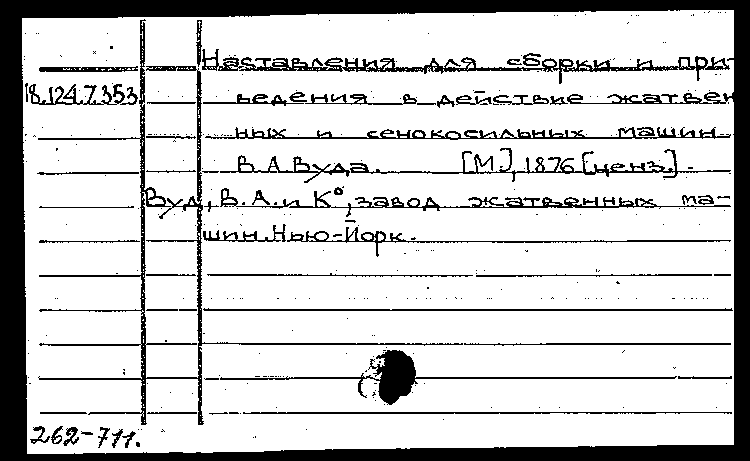 Наставления для сборки и при-
18.124.7.353 ведения в действие жатвен
ных и сенокосильных машин
В.А.Вуда. [М], 1876 [ценз.].-
Вуд, В.А. и К°, завод жатвенных ма-
шин. Нью-Йорк.
262-711.